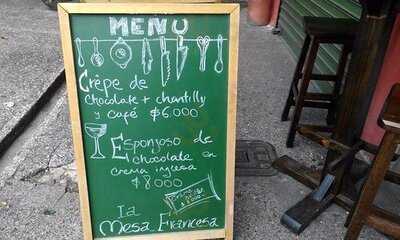 MENU
Crêpe de
chocolate + chantilly
y café $6.000
Esponjoso de
chocolate en
crema inglesa
$8000
La
Mesa Francesa